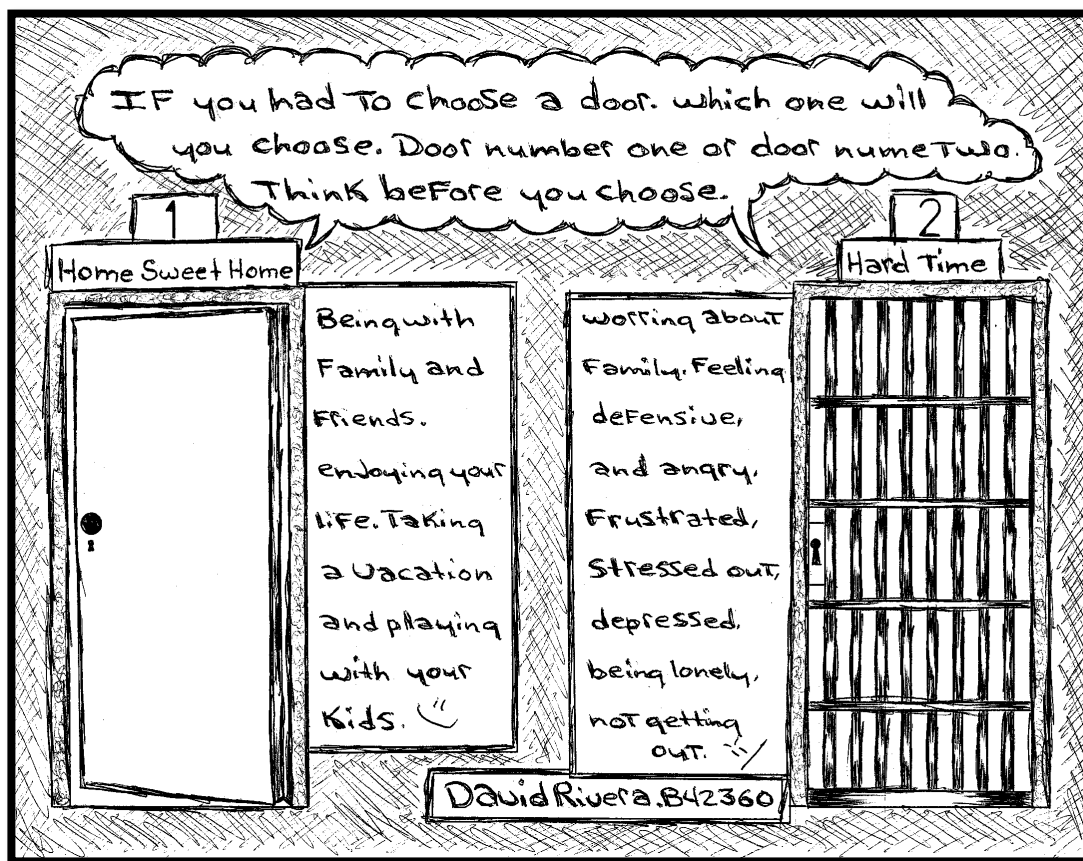 IF you had To choose a door. which one will
you choose. Door number one or door nume Two.
Think before you choose.
1
Home Sweet Home
Being with
Family and
Friends.
enjoying your
life. Taking
a vacation
and playing
with your
Kids.
2
Hard Time
worring about
Family. Feeling
defensive,
and angry,
Frustrated,
Stressed out,
depressed,
being lonely,
not getting
out.
David Rivera.B42360